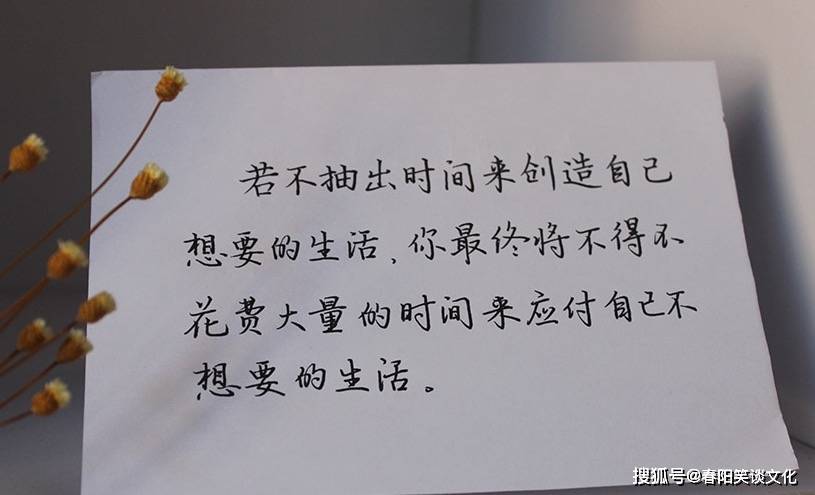 若不抽出时间来创造自己
想要的生活，你最终将不得不
花费大量的时间来应付自己不
想要的生活。
搜狐号@春阳笑谈文化